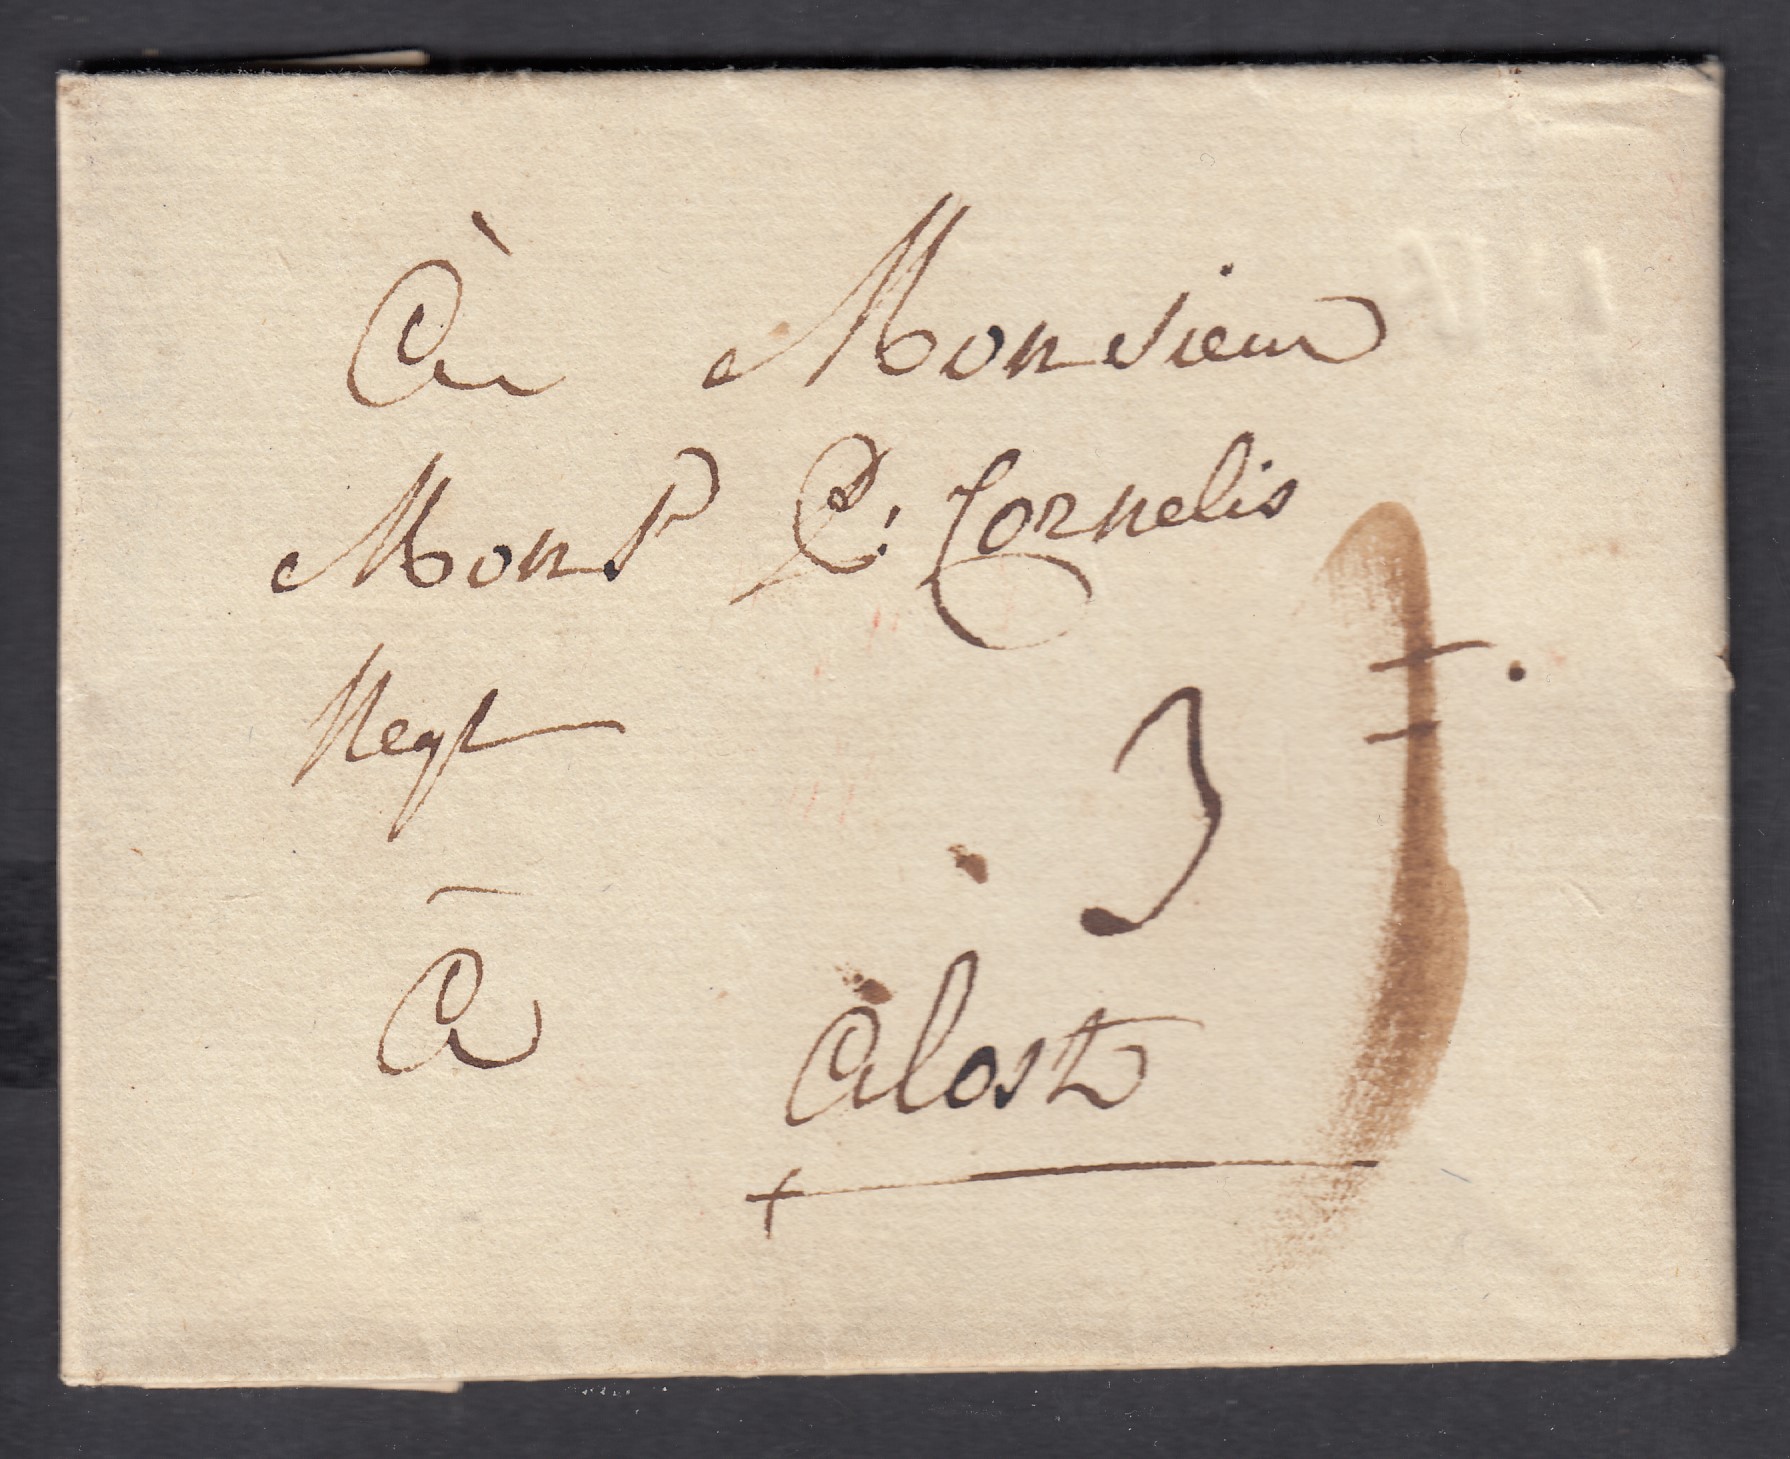 à Monsieur
Mons.r C: Cornelis
Negt
3
à alost